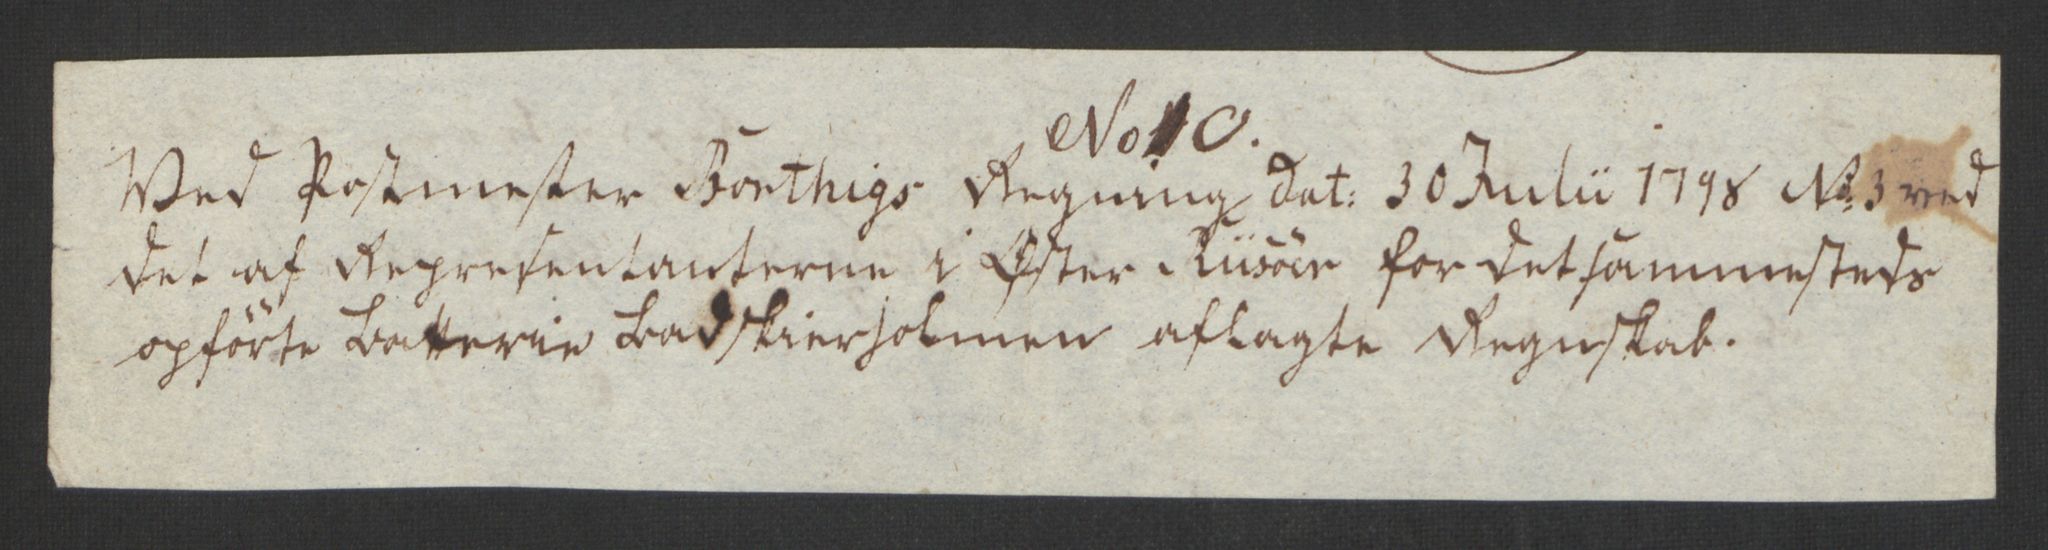 No 10.
Wed Postmester Boethigs Regning dat: 30 Julii 1798 No 3 ved
det af Representanterne i Øster Riisöer for det sammesteds
opförte Batterie Badskierholmen aflagte Regnskab.